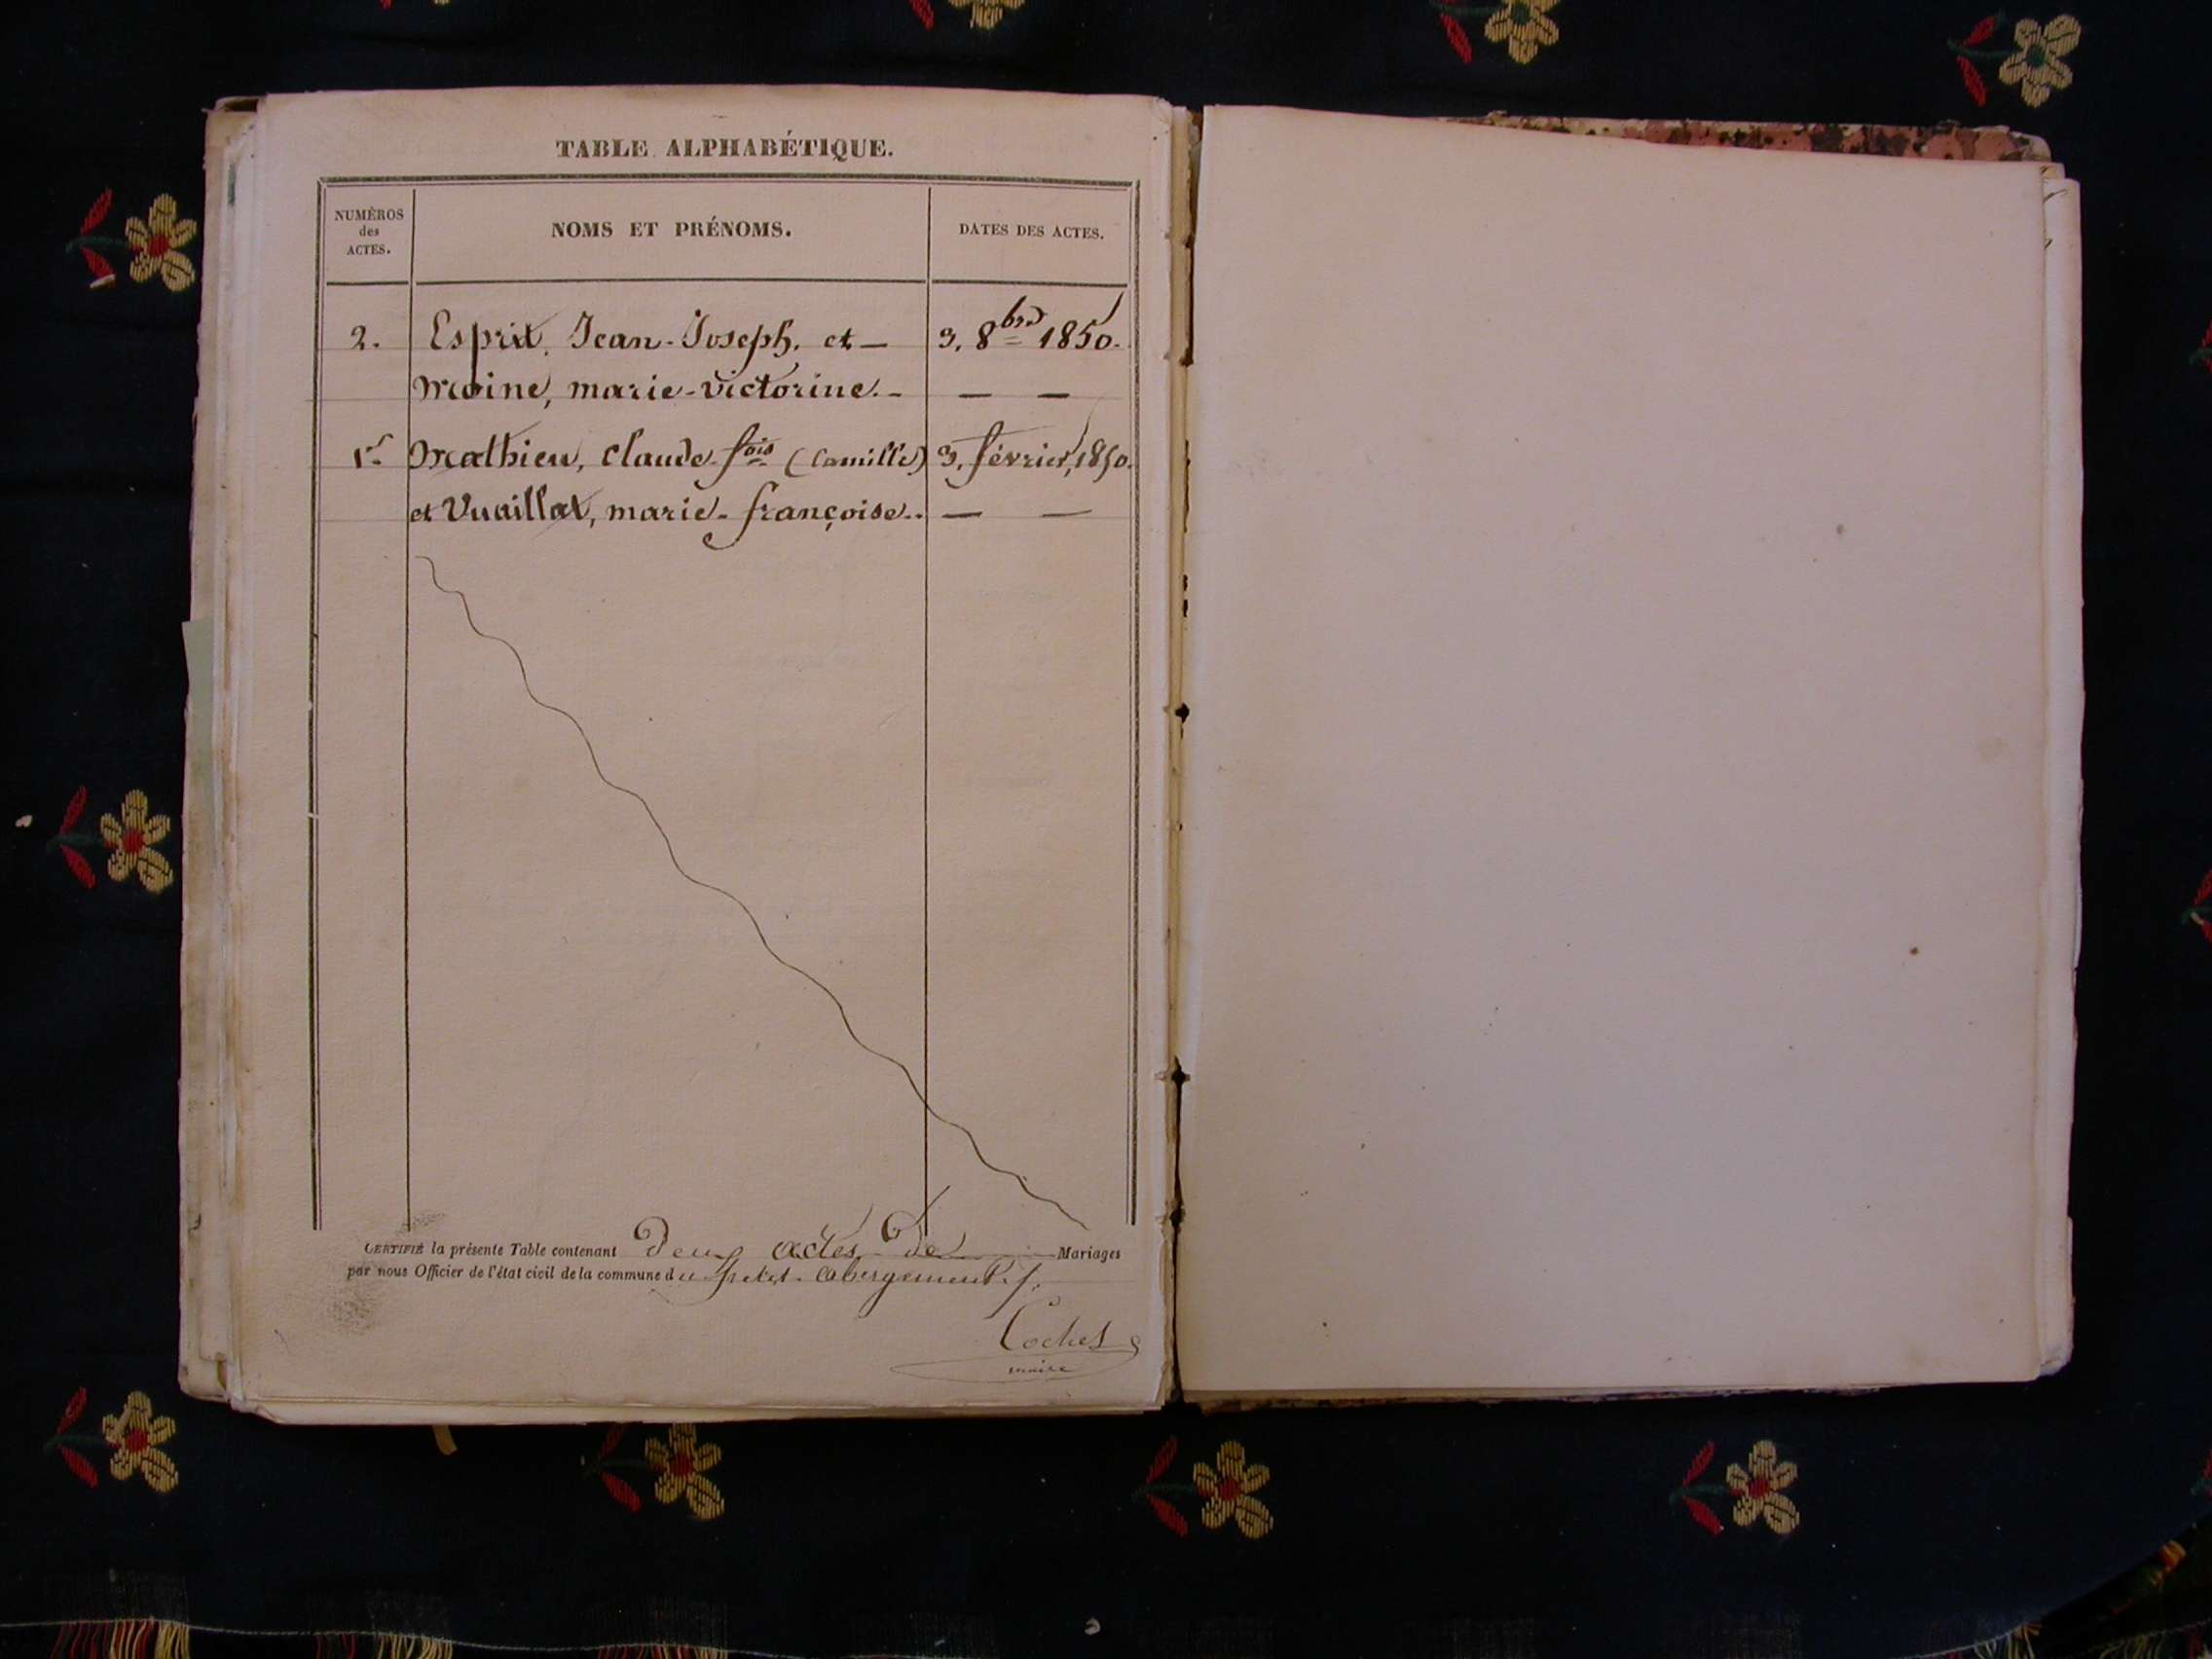 TABLE ALPHABÉTIQUE.
NUMÉROS
des
ACTES.
NOMS ET PRÉNOMS.
DATES DES ACTES.
2. Esprit, Jean-Joseph. et — 3. 8bre 1850.
Moine, marie-victorine. — — —
1er Mathieu, Claude-fois (Camille) 3. février, 1850.
et Vuaillat, marie-françoise.. — —
CERTIFIÉ la présente Table contenant Deux actes de Mariages
par nous Officier de l'état civil de la commune du petit-abergement
Cochet
maire